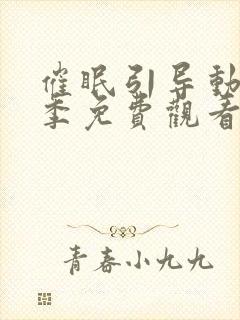 催眠引导動
季免費觀看
青春小九九